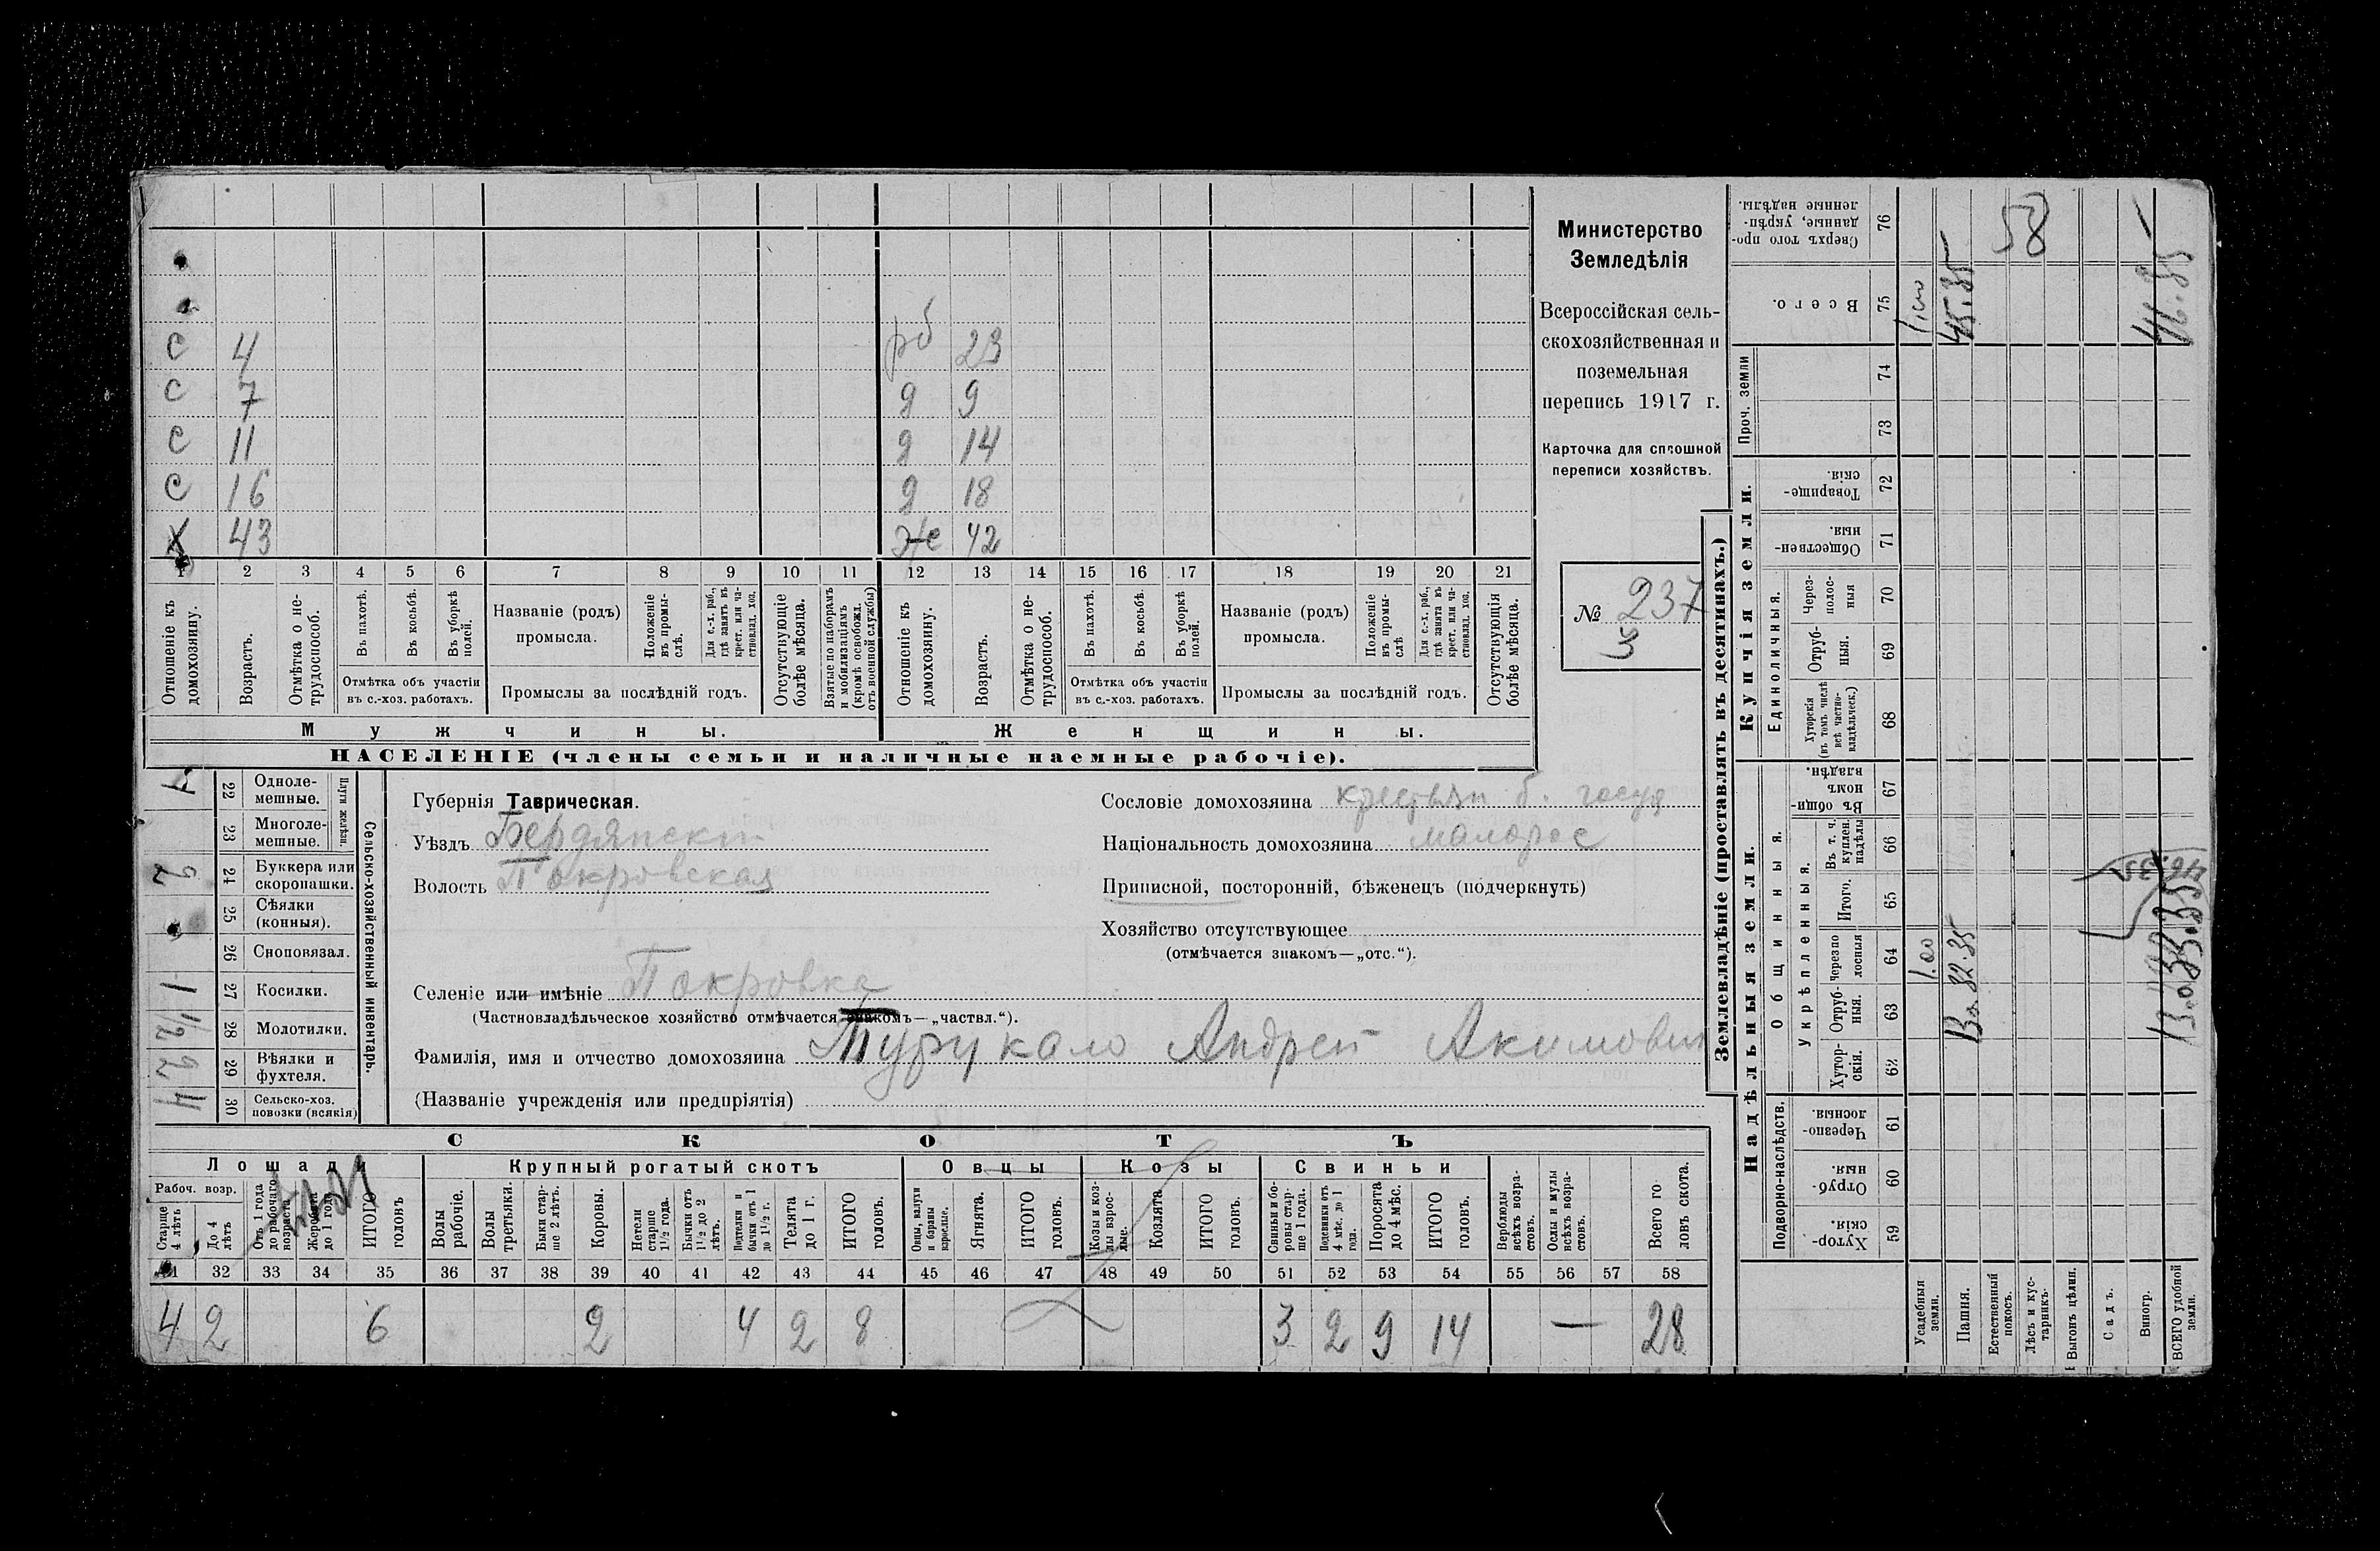 Министерство
Земледѣлія
Всероссійская сель-
скохозяйственная и
поземельная
перепись 1917 г.
Карточка для сплошной
переписи хозяйствъ.
№ 237
с 4 рб 23
с 7 д 9
с 11 д 14
с 16 д 18
х 43 же 42
1 2 3 4 5 6 7 8 9 10 11 12 13 14 15 16 17 18 19 20 21
Отношеніе къ домохозяину.
Возрастъ.
Отмѣтка о не-трудоспособ.
Въ пахотѣ.
Въ косьбѣ.
Въ уборкѣ полей.
Отмѣтка объ участіи
въ с.-хоз. работахъ.
Названіе (родъ)
промысла.
Положеніе въ промы-слѣ.
Для с.-х. раб., гдѣ занятъ въ крест. или ча-стновлад. хоз.
Промыслы за послѣдній годъ.
Отсутствующіе болѣе мѣсяца.
Взятые по наборамъ и мобилизаціямъ (кромѣ освобожд. отъ военной службы)
Отношеніе къ домохозяину.
Возрастъ.
Отмѣтка о не-трудоспособ.
Въ пахотѣ.
Въ косьбѣ.
Въ уборкѣ полей.
Отмѣтка объ участіи
въ с.-хоз. работахъ.
Названіе (родъ)
промысла.
Положеніе въ промы-слѣ
Для с.-х. раб., гдѣ занята въ крест. или ча-стновлад. хоз.
Промыслы за послѣдній годъ.
Отсутствующія болѣе мѣсяца.
Мужчины. Женщины.
НАСЕЛЕНІЕ (члены семьи и наличные наемные рабочіе).
Сельско-хозяйственный инвентарь.
Плуги желѣзн.
22 Одноле-мешные.
23 Многоле-мешные.
2 24 Буккера или скоропашки.
25 Сѣялки (конныя).
26 Сноповязал.
1 27 Косилки.
1/2 28 Молотилки.
2 29 Вѣялки и фухтеля.
4 30 Сельско-хоз. повозки (всякія)
Губернія Таврическая.
Уѣздъ Бердянскій
Волость Покровская
Сословіе домохозяина крестьян б. госуд
Національность домохозяина малорос
Приписной, посторонній, бѣженецъ (подчеркнуть)
Хозяйство отсутствующее
(отмѣчается знакомъ—„отс.“).
Селеніе или имѣніе Покровка
(Частновладѣльческое хозяйство отмѣчается знакомъ—„частвл.“).
Фамилія, имя и отчество домохозяина Турукало Андрей Акимович
(Названіе учрежденія или предпріятія)
СКОТЪ
Лошади Крупный рогатый скотъ Овцы Козы Свиньи
Рабоч. возр.
Старше 4 лѣтъ
До 4 лѣтъ
Отъ 1 года до рабочаго возраста
Жеребята до 1 года
ИТОГО головъ
Волы рабочіе.
Волы третьяки.
Быки стар-ше 2 лѣтъ.
Коровы.
Нетели старше 1 1/2 года.
Бычки отъ 1 1/2 до 2 лѣтъ.
Подтелки и бычки отъ 1 до 1 1/2 г.
Телята до 1 г.
ИТОГО головъ.
Овцы, валухи и бараны взрослые.
Ягнята.
ИТОГО головъ.
Козы и коз-лы взрос-лые.
Козлята
ИТОГО головъ.
Свиньи и бо-ровы стар-ше 1 года.
Подсвинки отъ 4 мѣс. до 1 года.
Поросята до 4 мѣс.
ИТОГО головъ.
Верблюды всѣхъ возра-стовъ.
Ослы и мулы всѣхъ возра-стовъ.
Всего го ловъ скота.
31 32 33 34 35 36 37 38 39 40 41 42 43 44 45 46 47 48 49 50 51 52 53 54 55 56 57 58
4 2 6 2 4 2 8 3 2 9 14 — 28
Землевладѣніе (проставлять въ десятинахъ.)
Надѣльныя земли. Купчія земли.
Подворно-наслѣдств.
Общинныя.
Укрѣпленныя.
Единоличныя.
Проч. земли
59 Хутор-скія.
60 Отруб-ныя.
61 Черезпо-лосныя.
62 Хутор-скія.
63 Отруб-ныя.
64 Черезпо лосныя
65 Итого.
66 Въ т. ч. куплен. надѣлы
67 Въ общин-номъ владѣн.
68 Хуторскія (въ томъ числѣ всѣ частно-владѣльческ.)
69 Отруб-ныя.
70 Через-полос-ныя
71 Обществен-ныя.
72 Товарище-скія.
73
74
75 Всего.
76 Сверхъ того про-данные, укрѣп-ленные надѣлы.
Усадебныя земли. 1.00 1.00
Пашня. 45.35
Естественный покосъ.
58
Лѣсъ и кус-тарникъ.
Выгонъ цѣлин.
Садъ.
Виногр.
ВСЕГО удобной земли. 46.35
46.35